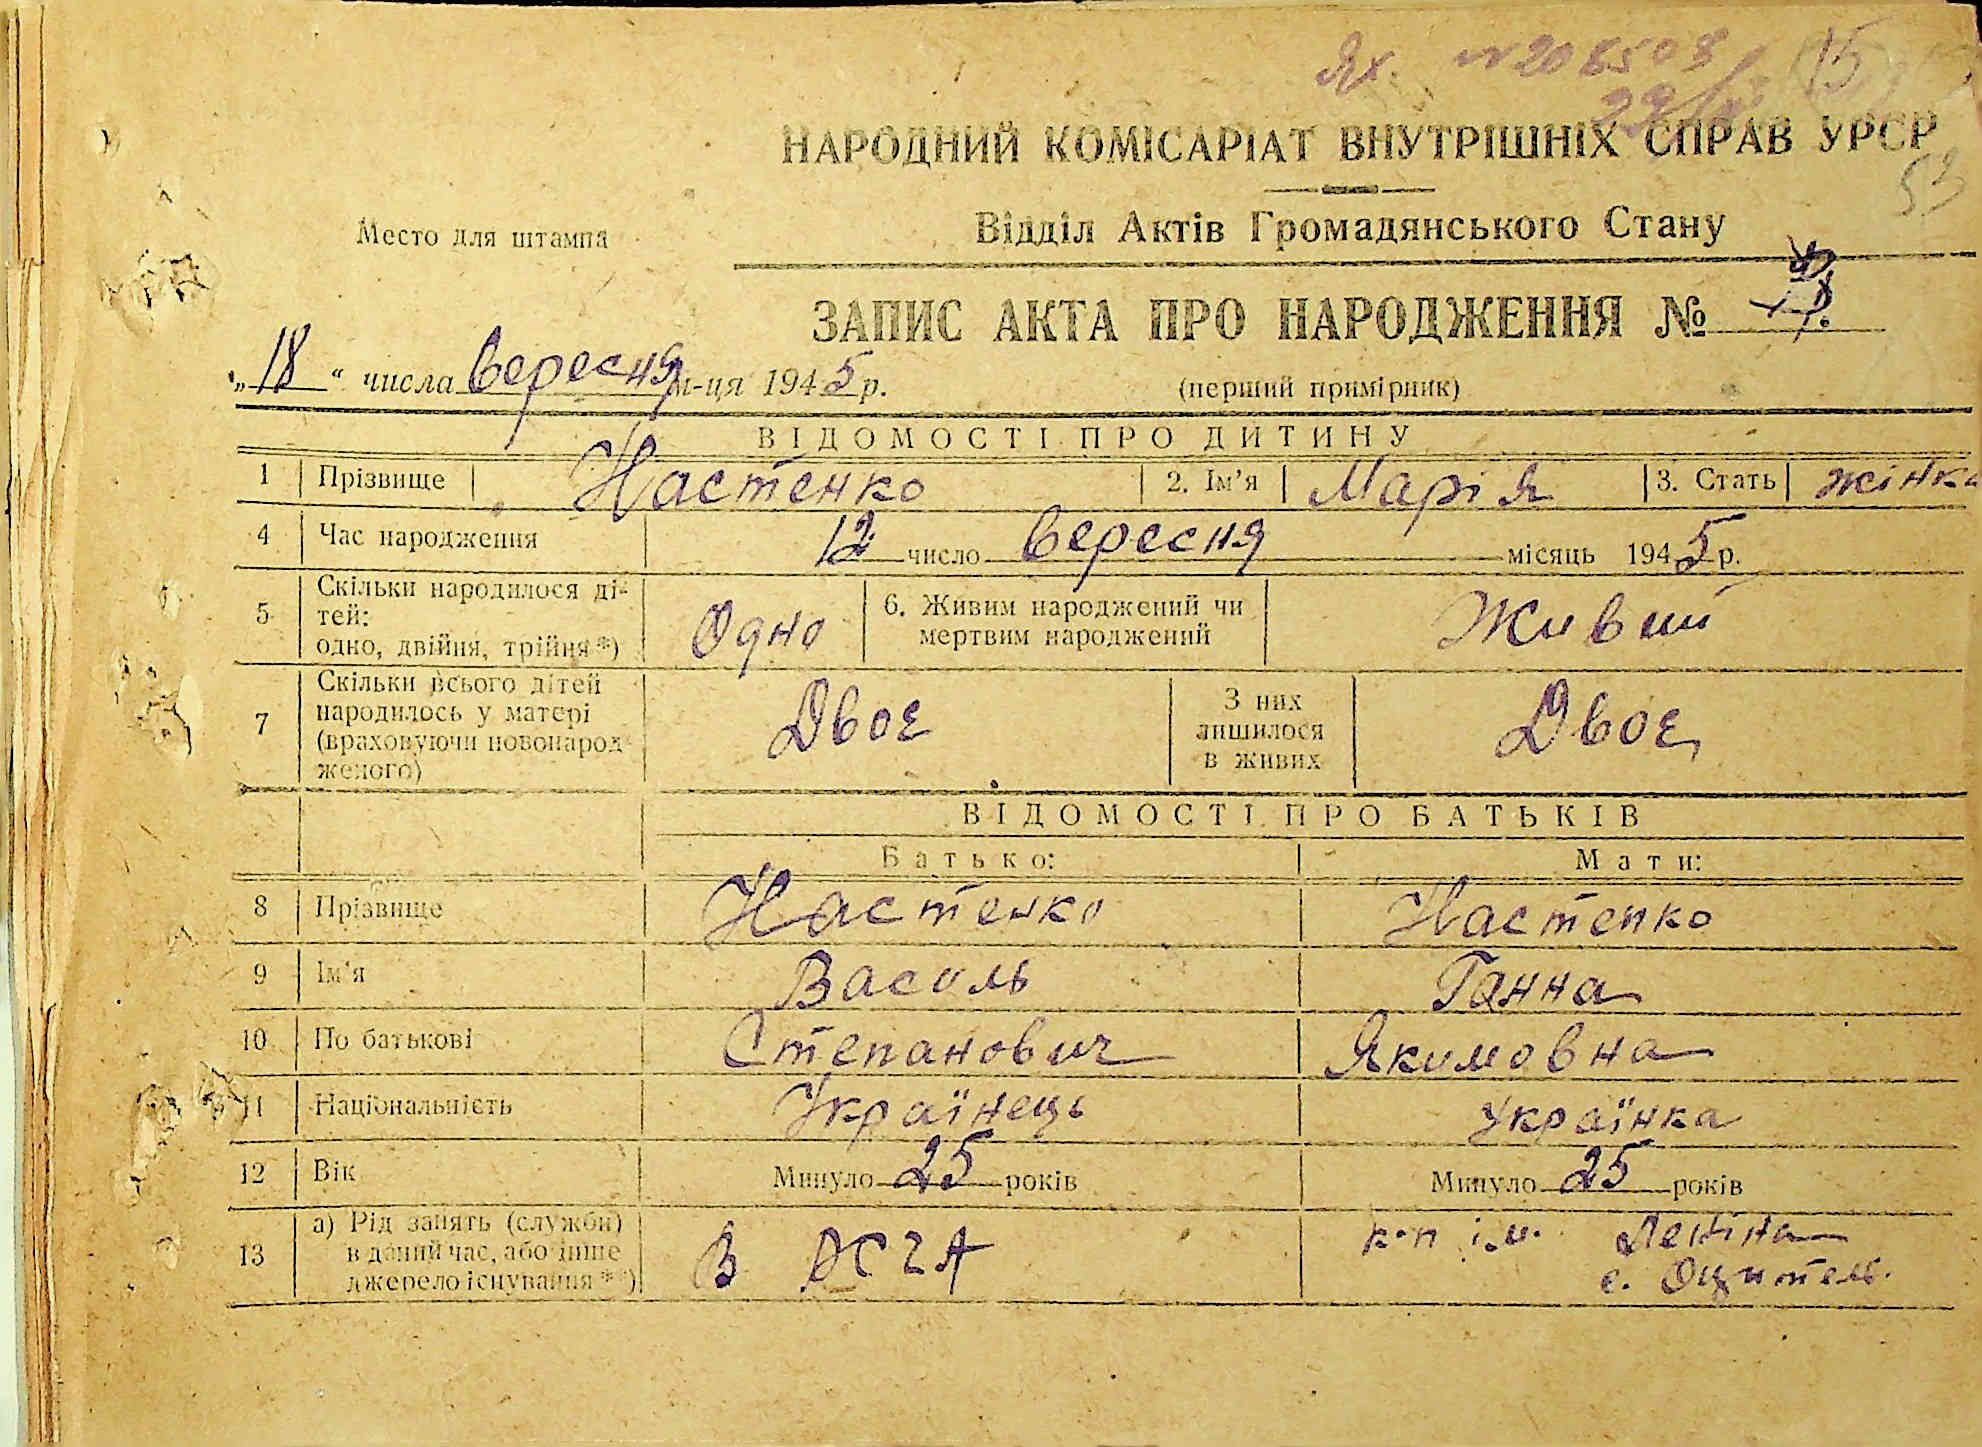 № 206503
15
НАРОДНИЙ КОМІСАРІАТ ВНУТРІШНІХ СПРАВ УРСР
53
Место для штампа
Відділ Актів Громадянського Стану
ЗАПИС АКТА ПРО НАРОДЖЕННЯ №
„18“ числа вересня м-ця 1945 р.
(перший примірник)
ВІДОМОСТІ ПРО ДИТИНУ
1 Прізвище Настенко 2. Ім'я Марія 3. Стать жінка
4 Час народження 12 число вересня місяць 1945 р.
5 Скільки народилося ді-
тей:
одно, двійня, трійня *) Одно 6. Живим народжений чи
мертвим народжений Живий
7 Скільки всього дітей
народилось у матері
(враховуючи новонарод-
женого) Двоє З них
лишилося
в живих Двоє
ВІДОМОСТІ ПРО БАТЬКІВ
Батько: Мати:
8 Прізвище Настенко Настенко
9 Ім'я Василь Ганна
10 По батькові Степанович Якимовна
11 Національність Українець Українка
12 Вік Минуло 25 років Минуло 25 років
13 а) Рід занять (служби)
в даний час, або інше
джерело існування **) В к-п ім. Леніна
с. Оцитель.